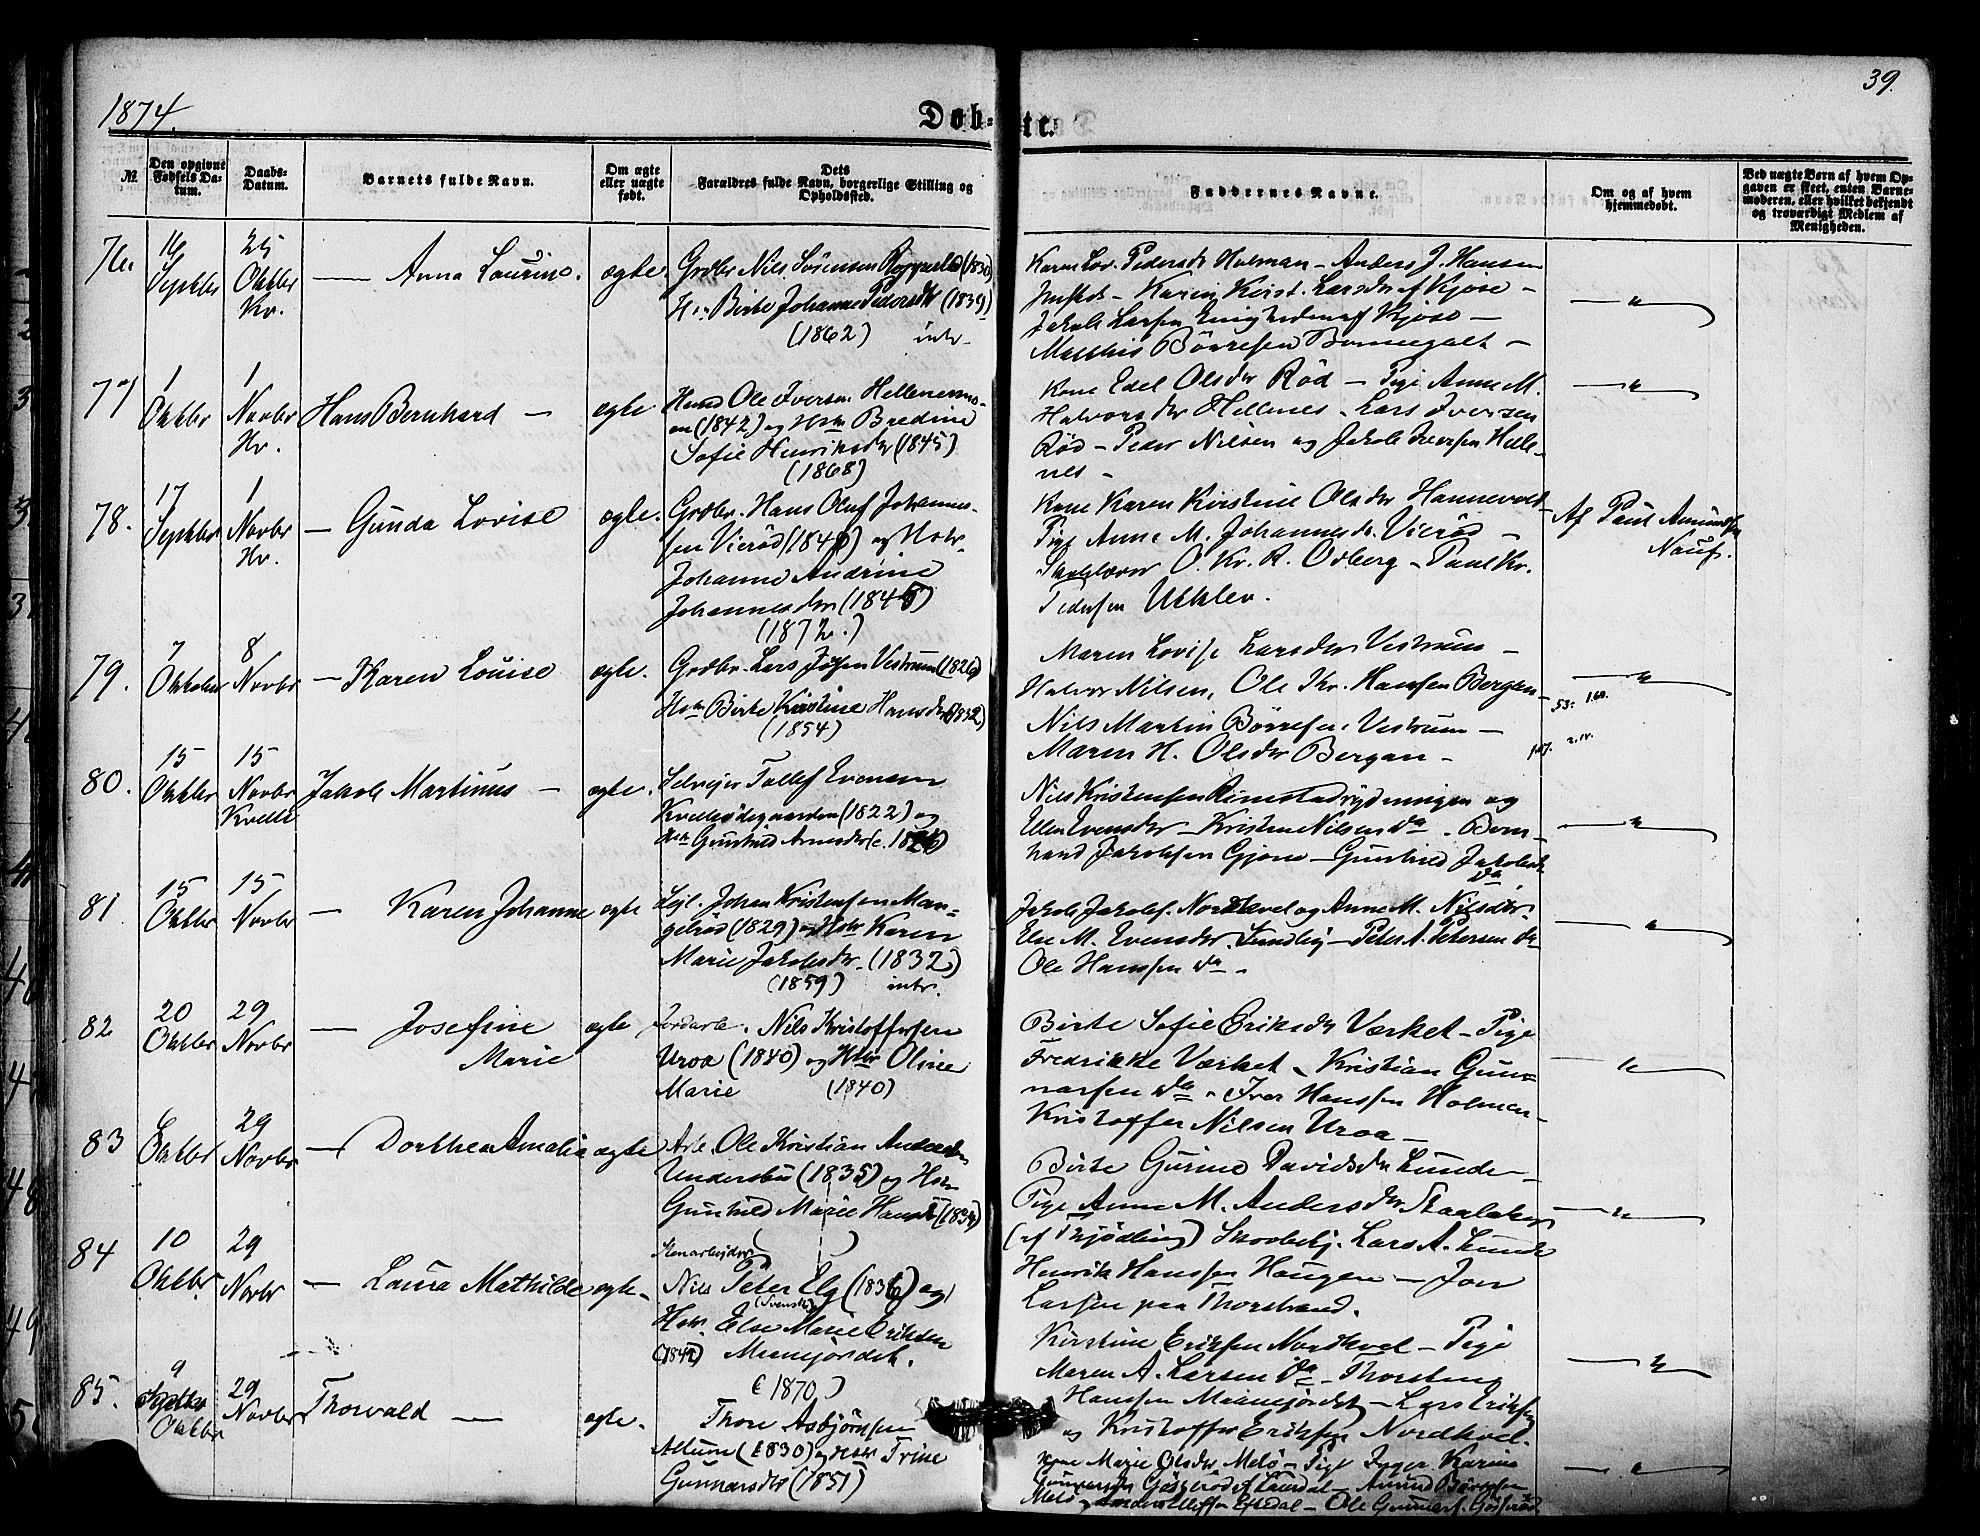 1874.
Døb-
te.
39.
№
Den opgivne Fødsels Da-
tum.
Daabs-
Datum.
Barnets fulde Navn.
Om ægte
eller uægte
født.
Dets
Forældres fulde Navn, borgerlige Stilling og
Opholdssted.
Faddernes Navne.
Om og af hvem
hjemmedøbt.
Ved uægte Børn af hvem Op-
gaven er skeet, enten Barne-
moderen, eller hvilket bekjendt
og troværdigt Medlem af
Menigheden.
76.
16
Septbr
25
Oktbr
Kv.
— Anna Laurine.
ægte.
Grdbr Nils Sörensen (1830)
Birte Johanne Pedersdtr (1839)
(1862) intr.
Pedersdr Holman – Anders J. Hansen
– Karen Kirst. Larsdr af Kjöse –
Jakob Larsen af Kjöse –
Matthis Börresen –
77
1
Oktbr
1
Novbr
Hv.
Hans Bernhard —
ægte
Ole Iversen Hellenesmo-
en (1842) og Hstr Bredine
Sofie Henriksdr (1845)
(1868)
Kone Edel Olsdr Röd – Pige Anne M.
Halvorsdr Hellenes – Lars Iversen
Röd – Peder Nilsen og Jakob Iversen Helle-
nes –
78.
17
Septbr
1
Novbr
Hv.
— Gunda Lovise
ægte.
Grdbr. Hans Oluf Johannes-
sen Vieröd og Hstr.
Johanne Andrine
Johannesdtr
(1872.)
Kone Karen Kirstine Olsdr Hannevold –
Pige Anne M. Johannesdr. Vieröd –
Skolelærer O. Kr. R. Odberg – Paul Kr.
Pedersen Uklev.
Af Paul Amundsen
79.
7
Oktober
8
Novbr
— Karen Louise
ægte.
Grdbr. Lars Vestrum (1826)
Hstr Birte Kirstine Hansdr (1832)
(1854)
Maren Lovise Larsdtr Vestrum –
Halvor Nilsen, Ole Kr. Hansen Bergan –
Nils Martin Börresen Vestrum –
Maren H. Olsdr Bergan –
80.
15
Oktbr
15
Novbr
Kvelle
Jakob Martinus —
ægte.
Selvejer Tollef Evensen
Kvelleödegaarden (1822) og
Hstr Gunhild Arnesdr
Nils Kristensen Rimstadrydningen og
Ellen Evensdr – Kristen Nilsen do – Bern-
hard Jakobsen Gjone – Gunhild Jakobsdr
do
81.
15
Oktbr
15
Novbr
— Karen Johanne
ægte
Lejl. Johan Kristensen Man-
geröd (1829) og Hstr Karen
Marie Jakobsdr. (1832)
(1859) intr.
Jakob Jakobs. Nordkvel og Anne M. Nilsdtr.
Else M. Evensdr. – Peter A. Petersen do
Ole Hansen do –
82
20
Oktbr
29
Novbr
— Josefine
Marie
ægte
Jordarb. Nils Kristoffersen
Uroa (1840) og Hstr Oline
Marie (1840)
Birte Sofie Eriksdr Værket – Pige
Fredrikke Værket – Kristian Gun-
narsen do – Iver Hansen Holmen –
Kristoffer Nilsen Uroa –
83
6
Oktbr
29
Novbr
— Dorthea Amalia
ægte
Arb. Ole Kristian Anderssen
Undersbu (1835) og Hstr
Gunhild Marie (1834)
Birte Gurine Davidsdr Lunde –
Pige Anne M. Andersdr Staalaker
(af Tjödling) Skovbetj. Lars A. Lunde
Henrik Hansen Haugen – Jon
Larsen paa Thorstrand.
84
10
Oktbr
29
Novbr
— Laura Mathilde
ægte –
Stenarbejder
Nils Peter Elg (1836) og
(Svensk)
Hstr. Else Marie Eriksen
(1842) Mianejordet.
(1870)
Kirstine Eriksen Nordkvel – Pige
Maren A. Larsen do – Thorsten
Hansen Mianejordet – Lars Eriksen
og Kristoffer Eriksen Nordkvel.
85.
9
Oktbr
29
Novbr
Thorvald —
ægte.
Thore Asbjörnsen
Allum (1830) og Hstr Trine
Gunnarsdr (1851)
Kone Marie Olsdr Melö – Pige Inger Karine
Gunnarsdr Gösseröd af Laurdal – Amund Börresen
Melö – Anders Ellefsen Eftedal – Ole Gunnars. Gösseröd